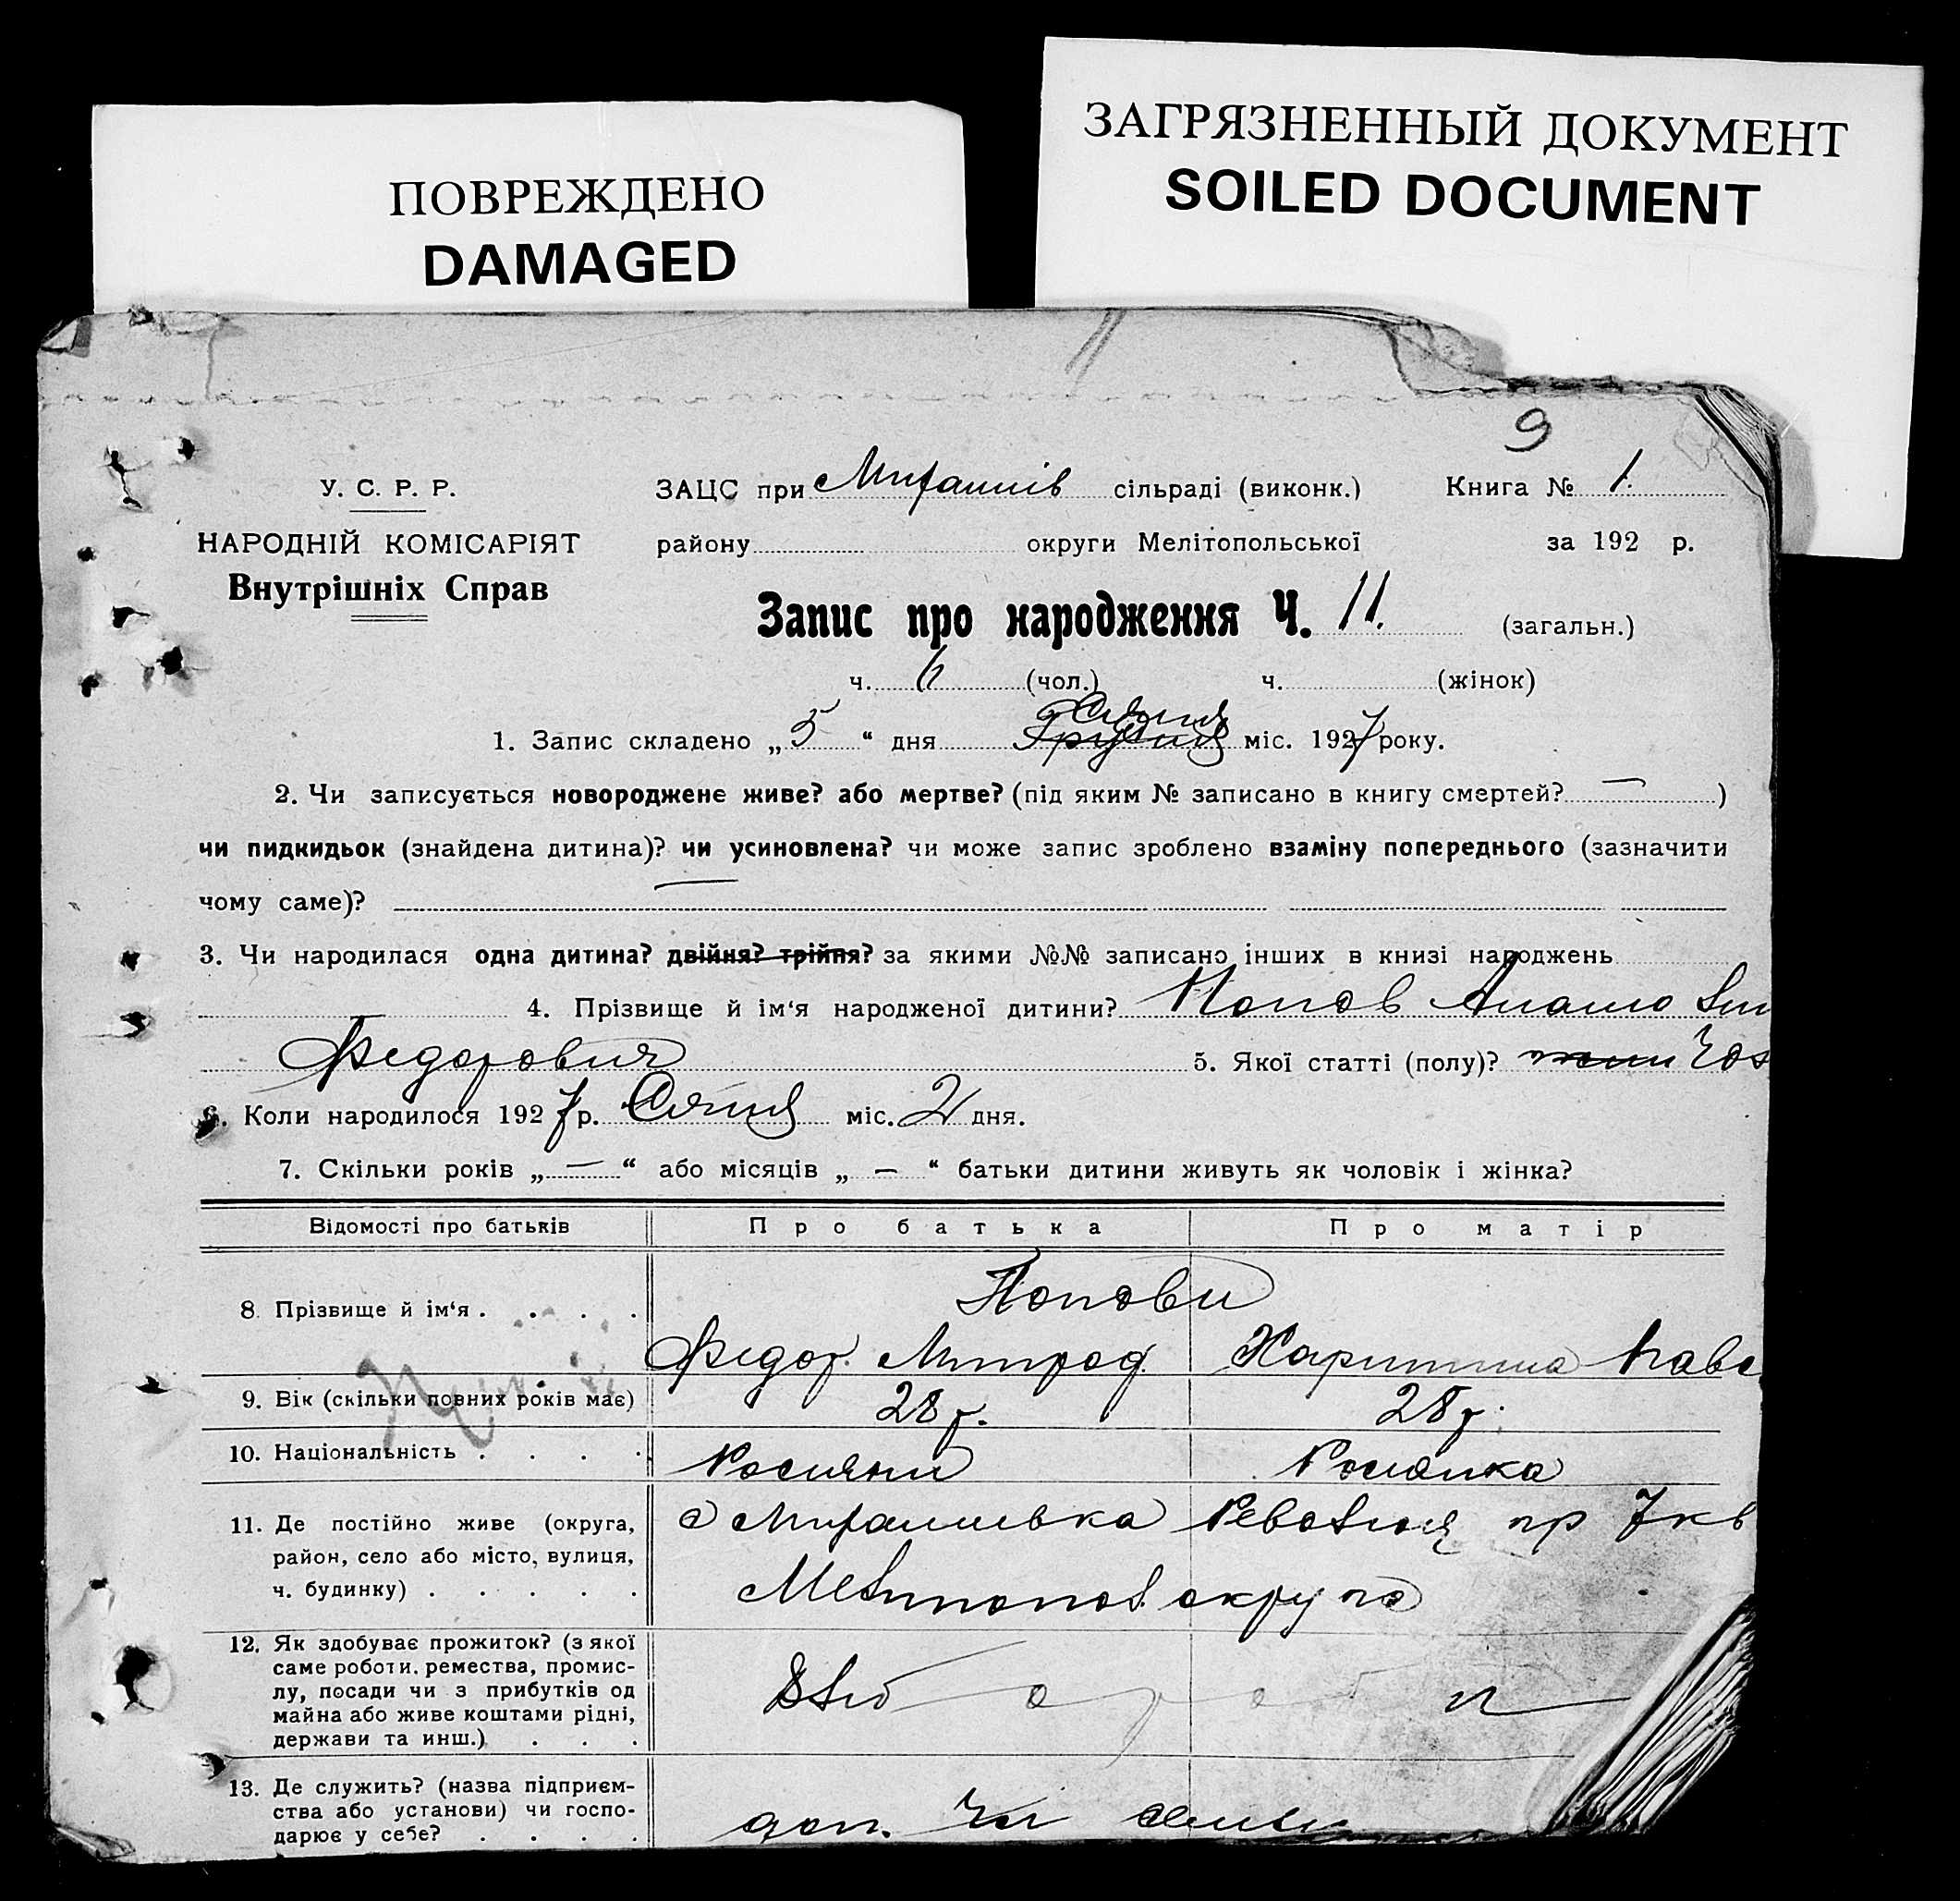 ПОВРЕЖДЕНО
DAMAGED
ЗАГРЯЗНЕННЫЙ ДОКУМЕНТ
SOILED DOCUMENT
9
У. С. Р. Р.
НАРОДНІЙ КОМІСАРІЯТ
Внутрішніх Справ
ЗАЦС при сільраді (виконк.) Книга № 1.
району округи Мелітопольської за 192 р.
Запис про народження Ч. 11. (загальн.)
ч. 6 (чол.) ч. (жінок)
1. Запис складено „5“ дня Січня Грудня міс. 1927 року.
2. Чи записується новороджене живе? або мертве? (під яким № записано в книгу смертей? — )
чи пидкидьок (знайдена дитина)? чи усиновлена? чи може запис зроблено взаміну попереднього (зазначити
чому саме)? —
3. Чи народилася одна дитина? двійня? трійня? за якими №№ записано інших в книзі народжень
4. Прізвище й ім‘я народженої дитини? Попов
Федорович 5. Якої статті (полу)?
6. Коли народилося 1927 р. Січня міс. 2 дня.
7. Скільки років „ — “ або місяців „ — “ батьки дитини живуть як чоловік і жінка?
Відомості про батьків Про батька Про матір
8 Прізвище й ім‘я . . . . Попови
Федор. Митроф. Харитина Павл
9. Вік (скільки повних років має) 28 р. 28 р.
10. Національність . . . . Росияни Росиянка
11. Де постійно живе (округа,
район, село або місто, вулиця,
ч. будинку) . . . . .
Революція пр 7 кв
Мелитопол. округа
12. Як здобуває прожиток? (з якої
саме роботи, ремества, промис-
лу, посади чи з прибутків од
майна або живе коштами рідні,
держави та инш.) . . .
Хліборобн
13. Де служить? (назва підприєм-
ства або установи) чи госпо-
дарює у себе? . . . .